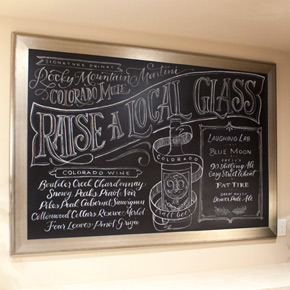 SIGNATURE DRINKS
Rocky Mountain Martini
COLORADO MULE
RAISE A LOCAL GLASS
COLORADO WINE
Boulder Creek Chardonnay
Snowy Peaks Pinot Noir
Pikes Peak Cabernet Sauvignon
Cottonwood Cellars Reserve Merlot
Four Leaves Pinot Grigio
COLORADO
90
Craft Beer
LAUGHING LAB
BLUE MOON
90 Shilling Ale
Easy Street Wheat
FAT TIRE
GREAT DIVIDE
Denver Pale Ale